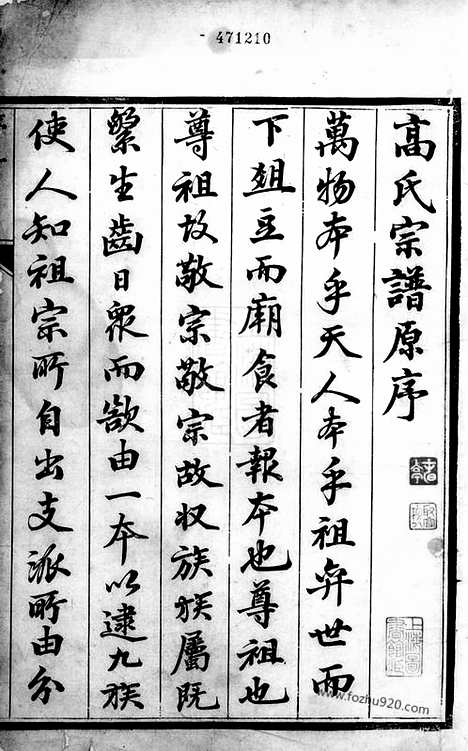 471210
高氏宗譜原序
萬物本乎天人本乎祖弈世而
下俎豆而廟食者報本也尊祖也
尊祖故敬宗敬宗故収族族屬既
繁生齒日眾而欲由一本以逮九族
使人知祖宗所自出支派所由分
www.fozhu920.com